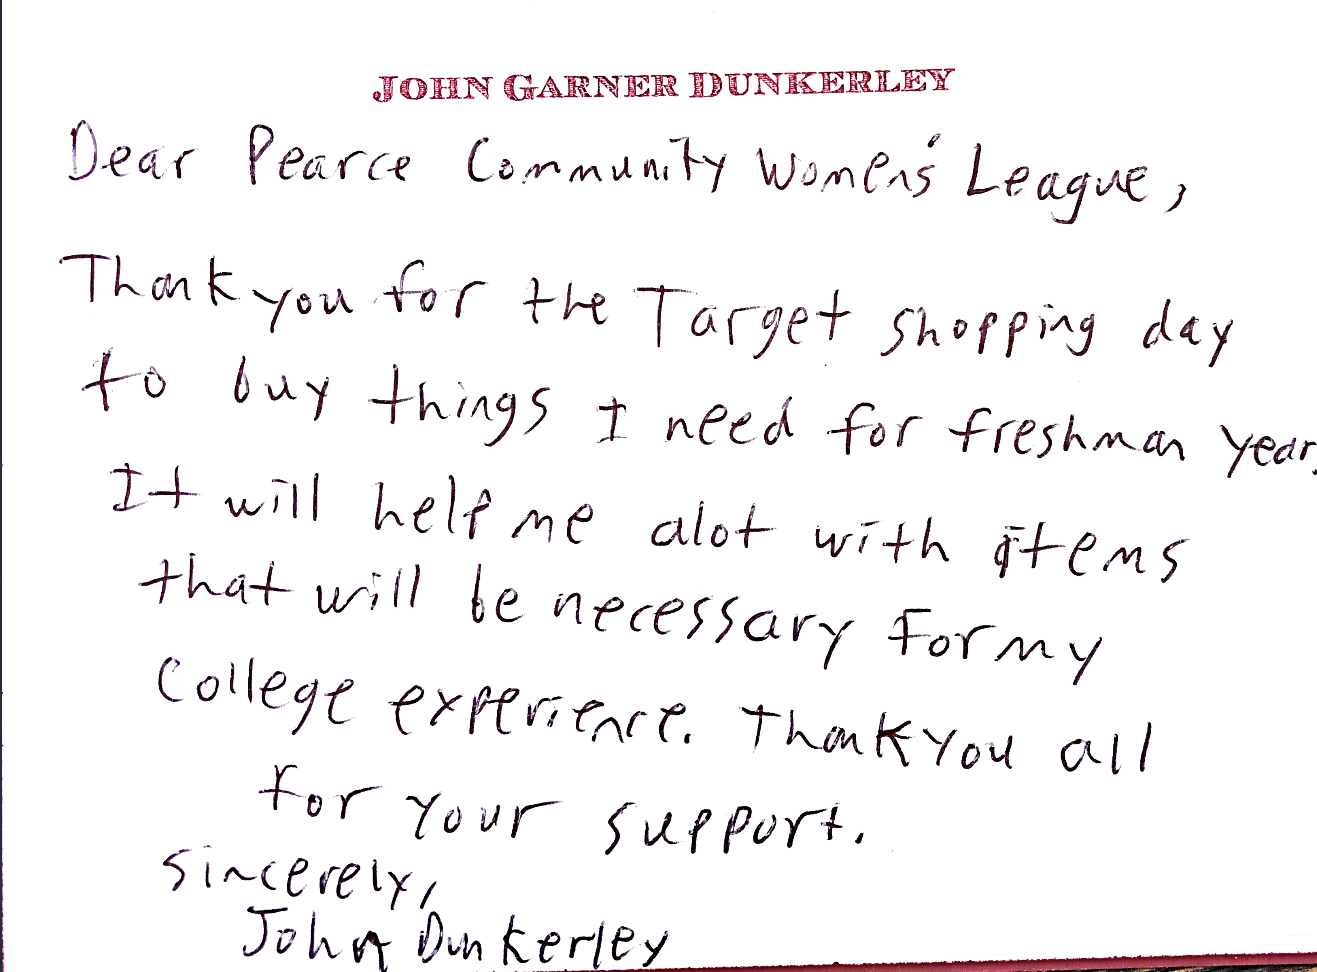 JOHN GARNER DUNKERLEY
Dear Pearce Community Women's League,
Thank you for the Target shopping day
to buy things I need for freshman year.
It will help me alot with items
that will be necessary for my
College experience. Thank you all
for your support.
Sincerely,
John Dunkerley